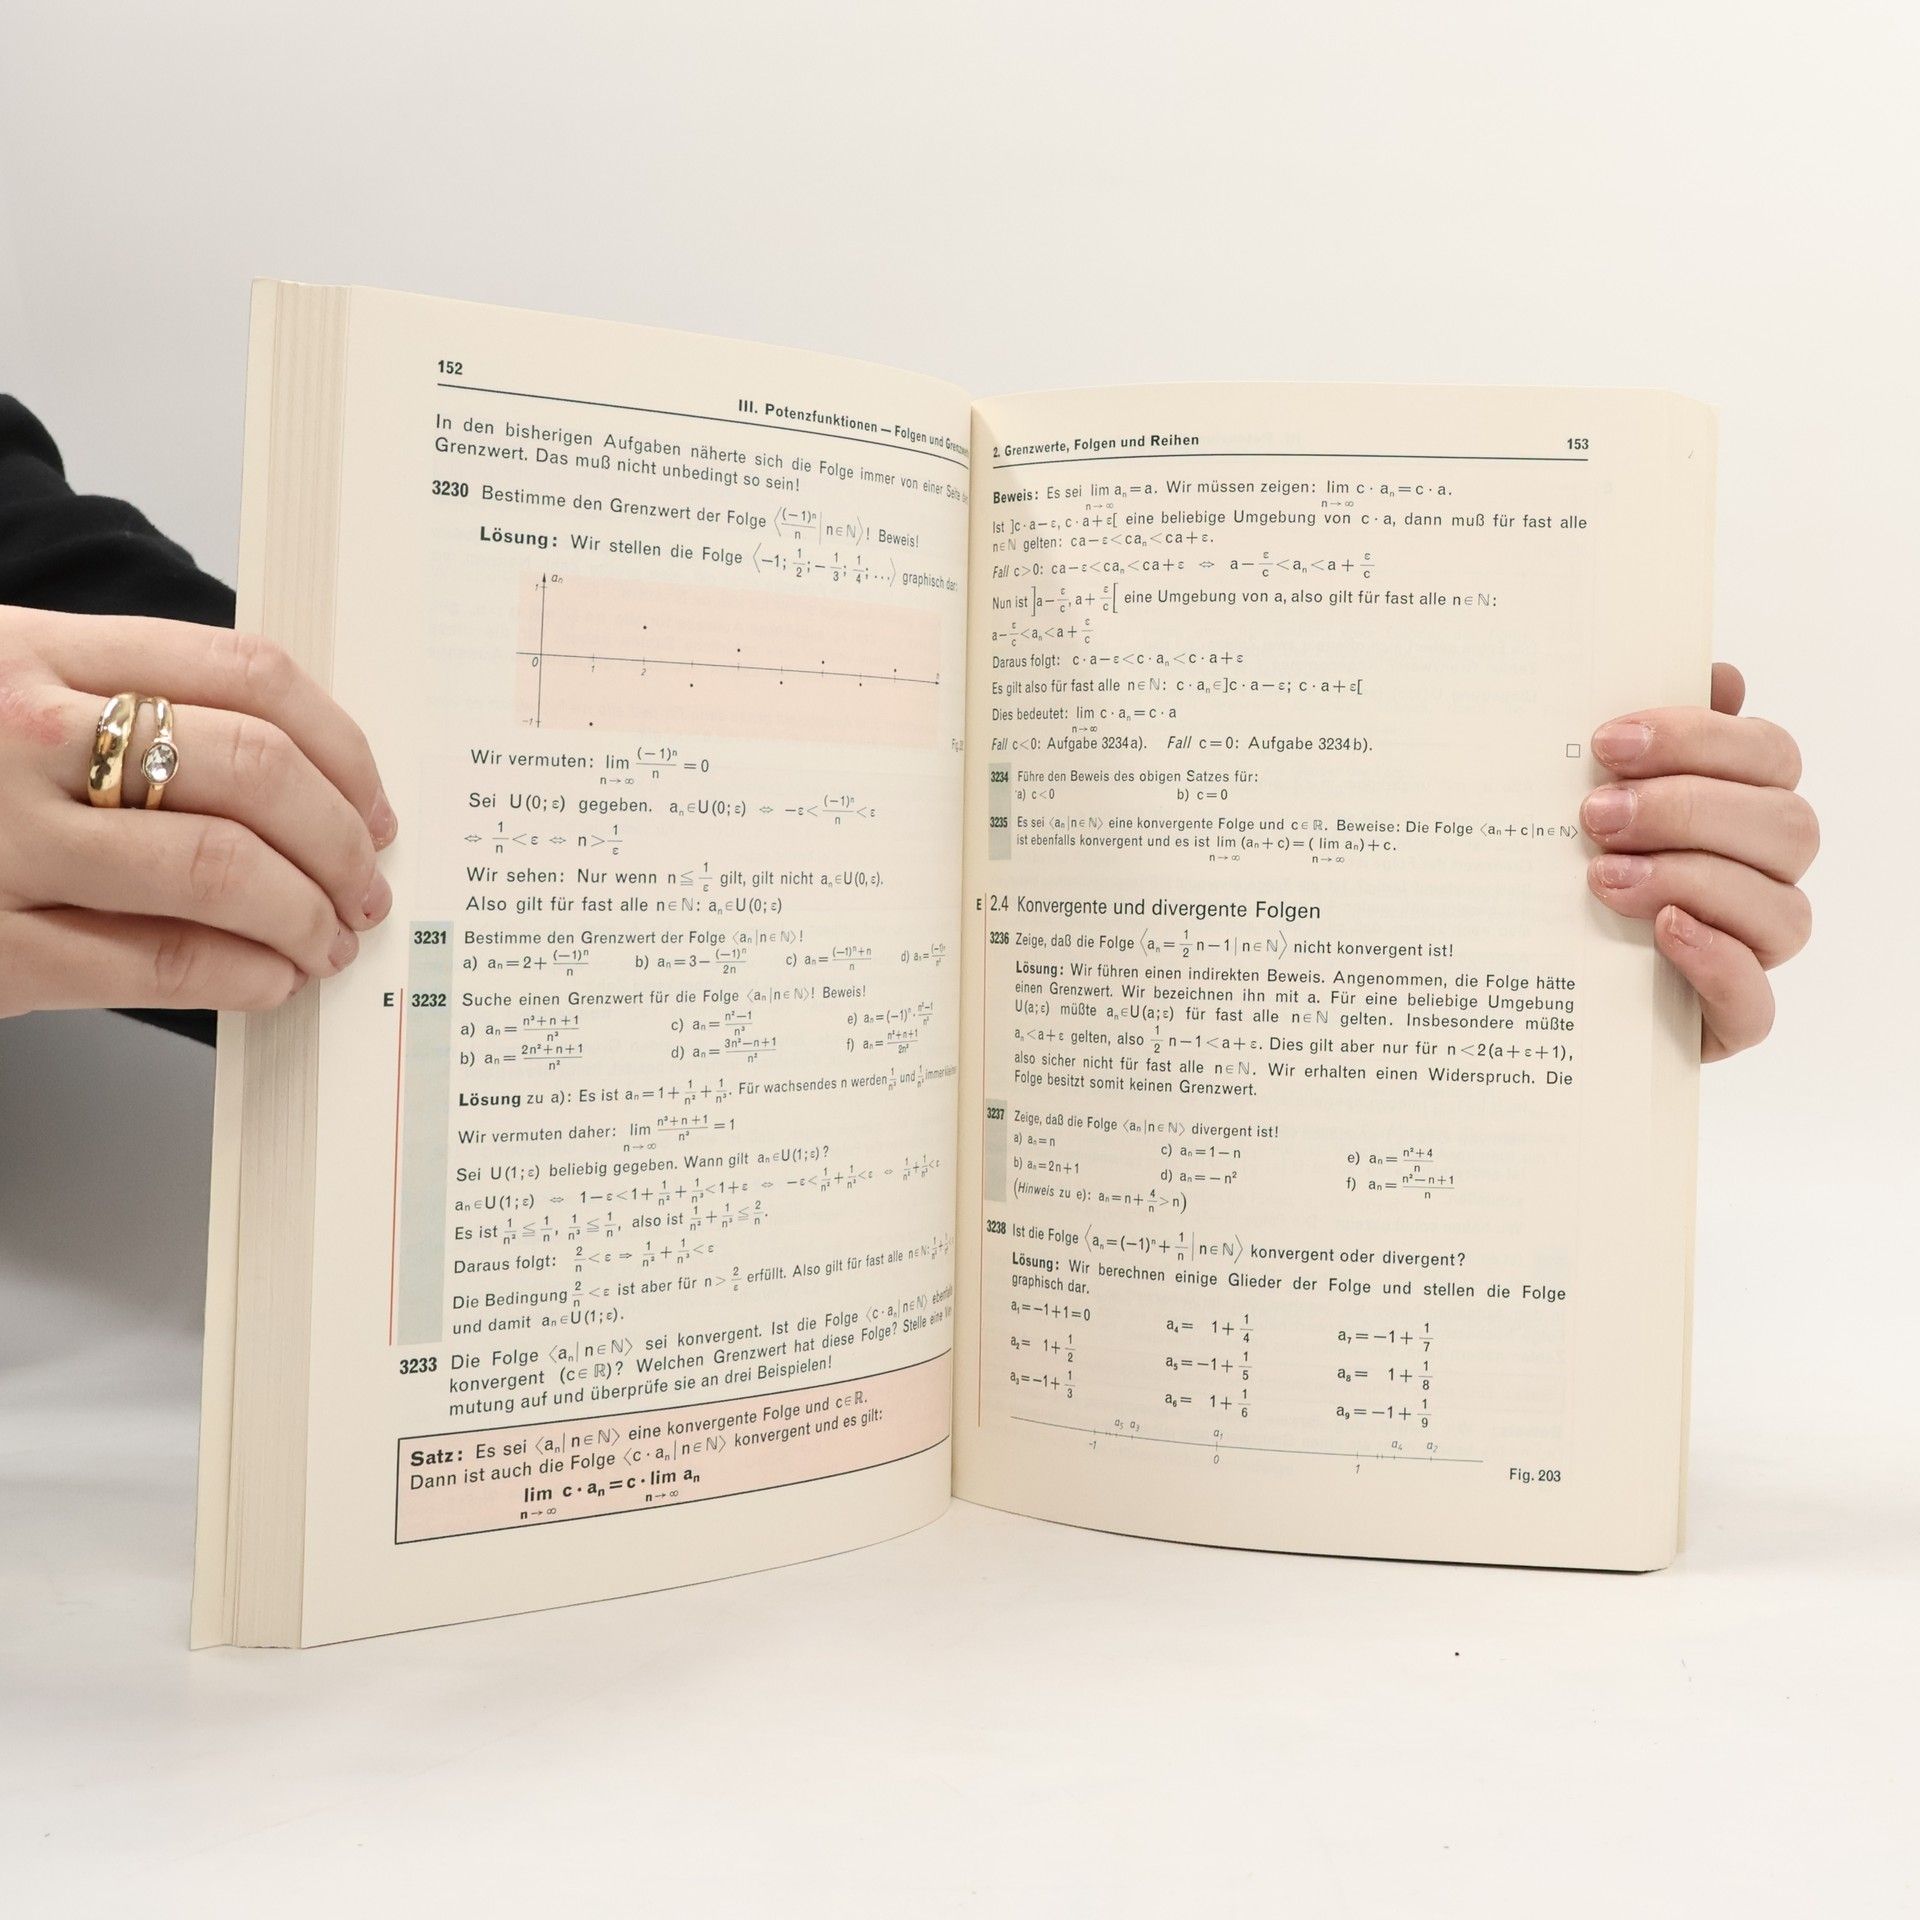 152
III. Potenzfunktionen — Folgen und
In den bisherigen Aufgaben näherte sich die Folge immer von einer Seite
Grenzwert. Das muß nicht unbedingt so sein!
3230 Bestimme den Grenzwert der Folge ⟨(−1)ⁿ/n | n∈ℕ⟩! Beweis!
Lösung: Wir stellen die Folge ⟨−1; 1/2; −1/3; 1/4; …⟩ graphisch dar:
1 aₙ
0 1 2
−1
Wir vermuten: lim n→∞ (−1)ⁿ/n = 0
Sei U(0; ε) gegeben. aₙ∈U(0; ε) ⇔ −ε < (−1)ⁿ/n < ε
⇔ 1/n < ε ⇔ n > 1/ε
Wir sehen: Nur wenn n ≦ 1/ε gilt, gilt nicht aₙ∈U(0, ε).
Also gilt für fast alle n∈ℕ: aₙ∈U(0; ε)
3231 Bestimme den Grenzwert der Folge ⟨aₙ|n∈ℕ⟩!
a) aₙ = 2 + (−1)ⁿ/n b) aₙ = 3 − (−1)ⁿ/2n c) aₙ = ((−1)ⁿ+n)/n d) aₙ =
E 3232 Suche einen Grenzwert für die Folge ⟨aₙ|n∈ℕ⟩! Beweis!
a) aₙ = (n³+n+1)/n³ c) aₙ = (n²−1)/n³ e) aₙ = (−1)ⁿ · (n²−1)/n³
b) aₙ = (2n²+n+1)/n² d) aₙ = (3n²−n+1)/n² f) aₙ = (n²+n+1)/2n²
Lösung zu a): Es ist aₙ = 1 + 1/n² + 1/n³. Für wachsendes n werden 1/n² und 1/n³ immer
Wir vermuten daher: lim n→∞ (n³+n+1)/n³ = 1
Sei U(1; ε) beliebig gegeben. Wann gilt aₙ∈U(1; ε)?
aₙ∈U(1; ε) ⇔ 1−ε < 1 + 1/n² + 1/n³ < 1+ε ⇔ −ε < 1/n² + 1/n³ < ε ⇔ 1/n² + 1/n³ < ε
Es ist 1/n² ≦ 1/n, 1/n³ ≦ 1/n, also ist 1/n² + 1/n³ ≦ 2/n.
Daraus folgt: 2/n < ε ⇒ 1/n² + 1/n³ < ε
Die Bedingung 2/n < ε ist aber für n > 2/ε erfüllt. Also gilt für fast alle n∈ℕ:
und damit aₙ∈U(1; ε).
3233 Die Folge ⟨aₙ|n∈ℕ⟩ sei konvergent. Ist die Folge ⟨c·aₙ|n∈ℕ⟩
konvergent (c∈ℝ)? Welchen Grenzwert hat diese Folge? Stelle eine
mutung auf und überprüfe sie an drei Beispielen!
Satz: Es sei ⟨aₙ|n∈ℕ⟩ eine konvergente Folge und c∈ℝ.
Dann ist auch die Folge ⟨c·aₙ|n∈ℕ⟩ konvergent und es gilt:
lim n→∞ c·aₙ = c·lim n→∞ aₙ
2. Grenzwerte, Folgen und Reihen 153
Beweis: Es sei lim n→∞ aₙ = a. Wir müssen zeigen: lim n→∞ c·aₙ = c·a.
Ist ]c·a−ε, c·a+ε[ eine beliebige Umgebung von c·a, dann muß für fast alle
n∈ℕ gelten: ca−ε < caₙ < ca+ε.
Fall c>0: ca−ε < caₙ < ca+ε ⇔ a − ε/c < aₙ < a + ε/c
Nun ist ]a − ε/c, a + ε/c[ eine Umgebung von a, also gilt für fast alle n∈ℕ:
a − ε/c < aₙ < a + ε/c
Daraus folgt: c·a−ε < c·aₙ < c·a+ε
Es gilt also für fast alle n∈ℕ: c·aₙ∈]c·a−ε; c·a+ε[
Dies bedeutet: lim n→∞ c·aₙ = c·a
Fall c<0: Aufgabe 3234a). Fall c=0: Aufgabe 3234b). □
3234 Führe den Beweis des obigen Satzes für:
a) c<0 b) c=0
3235 Es sei ⟨aₙ|n∈ℕ⟩ eine konvergente Folge und c∈ℝ. Beweise: Die Folge ⟨aₙ+c|n∈ℕ⟩
ist ebenfalls konvergent und es ist lim n→∞ (aₙ+c) = (lim n→∞ aₙ)+c.
E 2.4 Konvergente und divergente Folgen
3236 Zeige, daß die Folge ⟨aₙ = 1/2 n−1 | n∈ℕ⟩ nicht konvergent ist!
Lösung: Wir führen einen indirekten Beweis. Angenommen, die Folge hätte
einen Grenzwert. Wir bezeichnen ihn mit a. Für eine beliebige Umgebung
U(a; ε) müßte aₙ∈U(a; ε) für fast alle n∈ℕ gelten. Insbesondere müßte
aₙ<a+ε gelten, also 1/2 n−1<a+ε. Dies gilt aber nur für n<2(a+ε+1),
also sicher nicht für fast alle n∈ℕ. Wir erhalten einen Widerspruch. Die
Folge besitzt somit keinen Grenzwert.
3237 Zeige, daß die Folge ⟨aₙ|n∈ℕ⟩ divergent ist!
a) aₙ=n c) aₙ=1−n e) aₙ=(n²+4)/n
b) aₙ=2n+1 d) aₙ=−n² f) aₙ=(n²−n+1)/n
(Hinweis zu e): aₙ=n+4/n>n)
3238 Ist die Folge ⟨aₙ=(−1)ⁿ+1/n | n∈ℕ⟩ konvergent oder divergent?
Lösung: Wir berechnen einige Glieder der Folge und stellen die Folge
graphisch dar.
a₁=−1+1=0 a₄= 1+1/4 a₇=−1+1/7
a₂= 1+1/2 a₅=−1+1/5 a₈= 1+1/8
a₃=−1+1/3 a₆= 1+1/6 a₉=−1+1/9
a₅ a₃ a₁ a₄ a₂
−1 0 1
Fig. 203